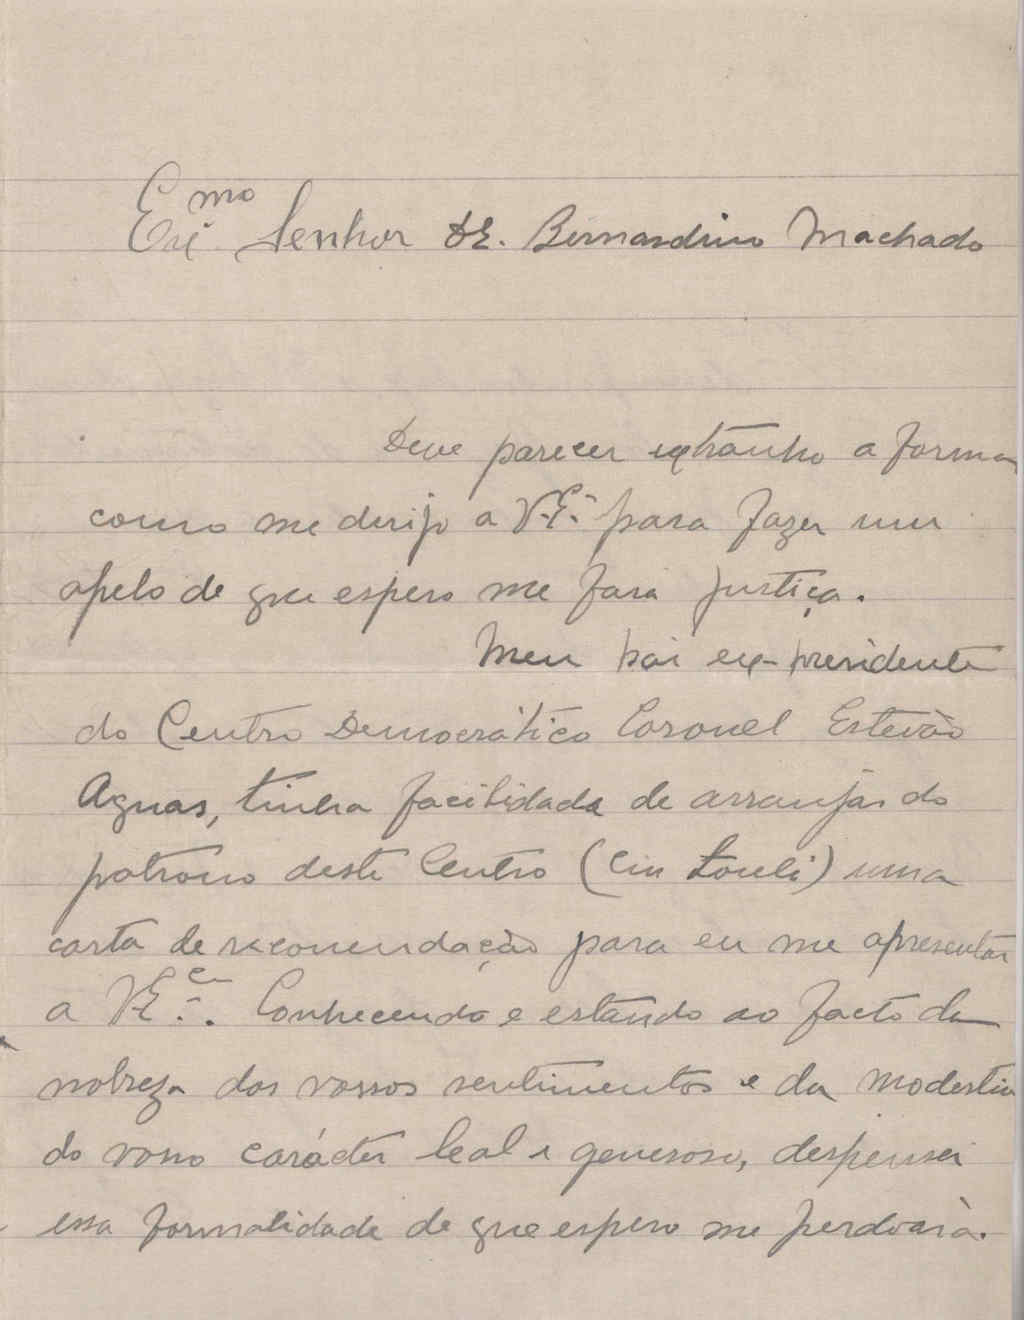 Exmo Senhor Dr. Bernardino Machado
Deve parecer extranho a forma
como me dirijo a V. Ex.ª para fazer um
apelo de que espero me fará justiça.
Meu pai ex-presidente
do Centro Democrático Coronel Estevão
Aguas, tinha facilidade de arranjar do
patrono deste Centro (em Loulé) uma
carta de recomendação para eu me apresentar
a V. Ex.ª. Conhecendo e estando ao facto da
nobreza dos vossos sentimentos e da modestia
do vosso carácter leal e generoso, dispensei
essa formalidade de que espero me perdoará.